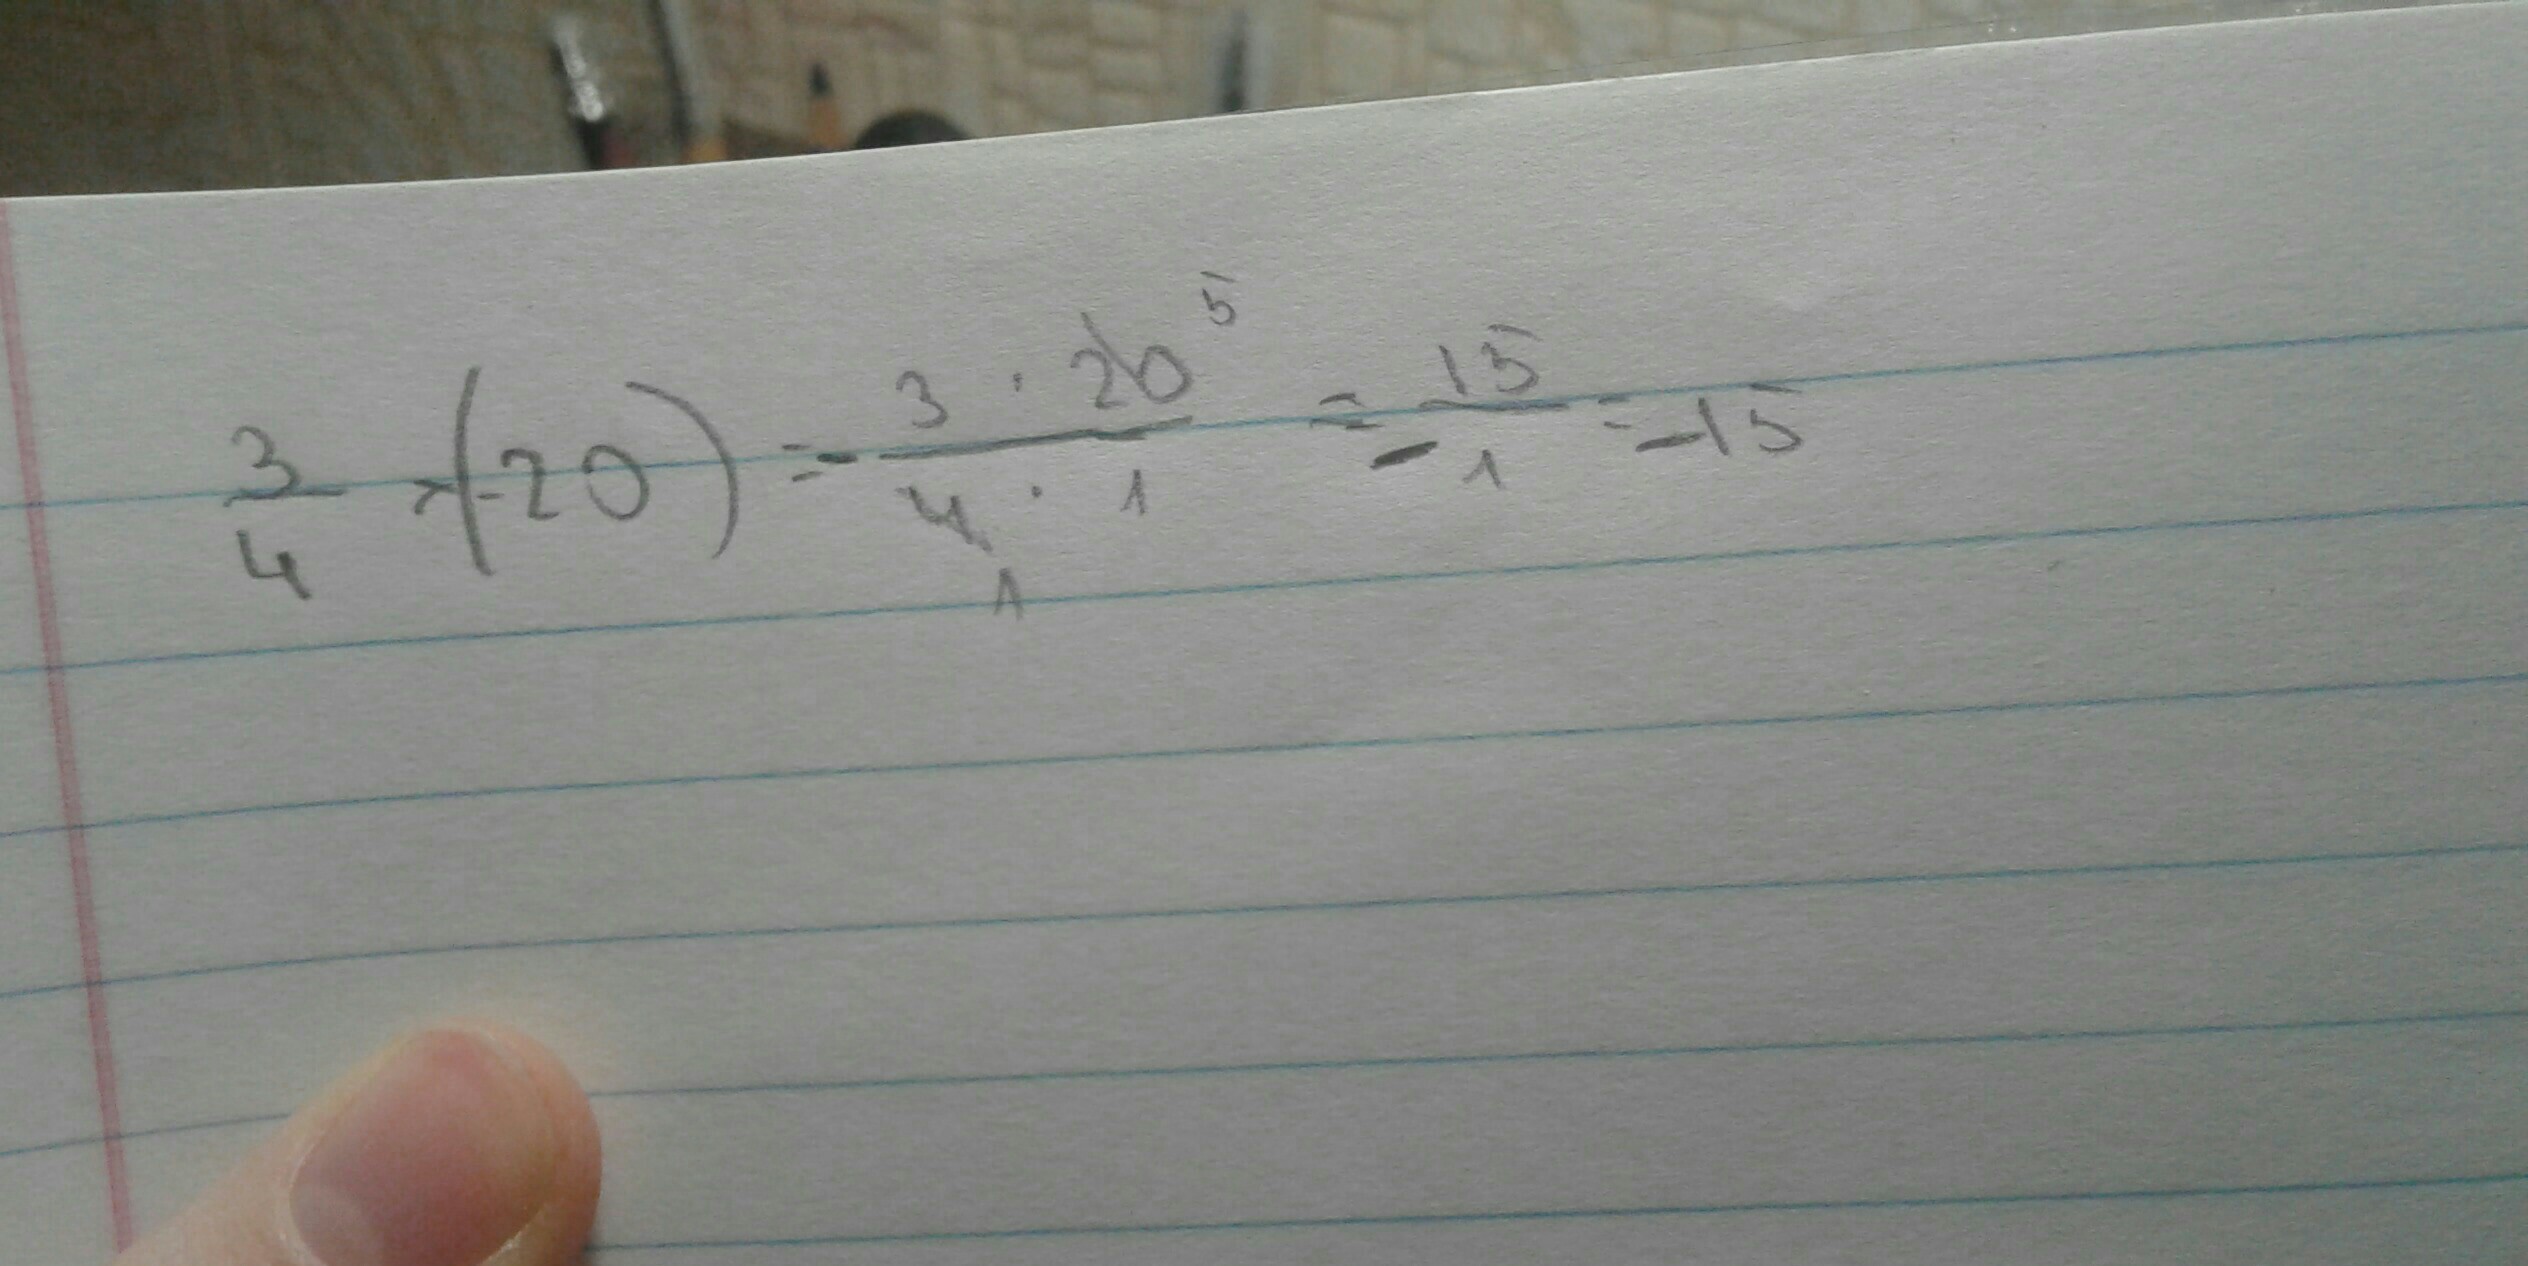 3/4 × (-20) = - 3 · 20 5 / 4 · 1 1 = - 15/1 = -15